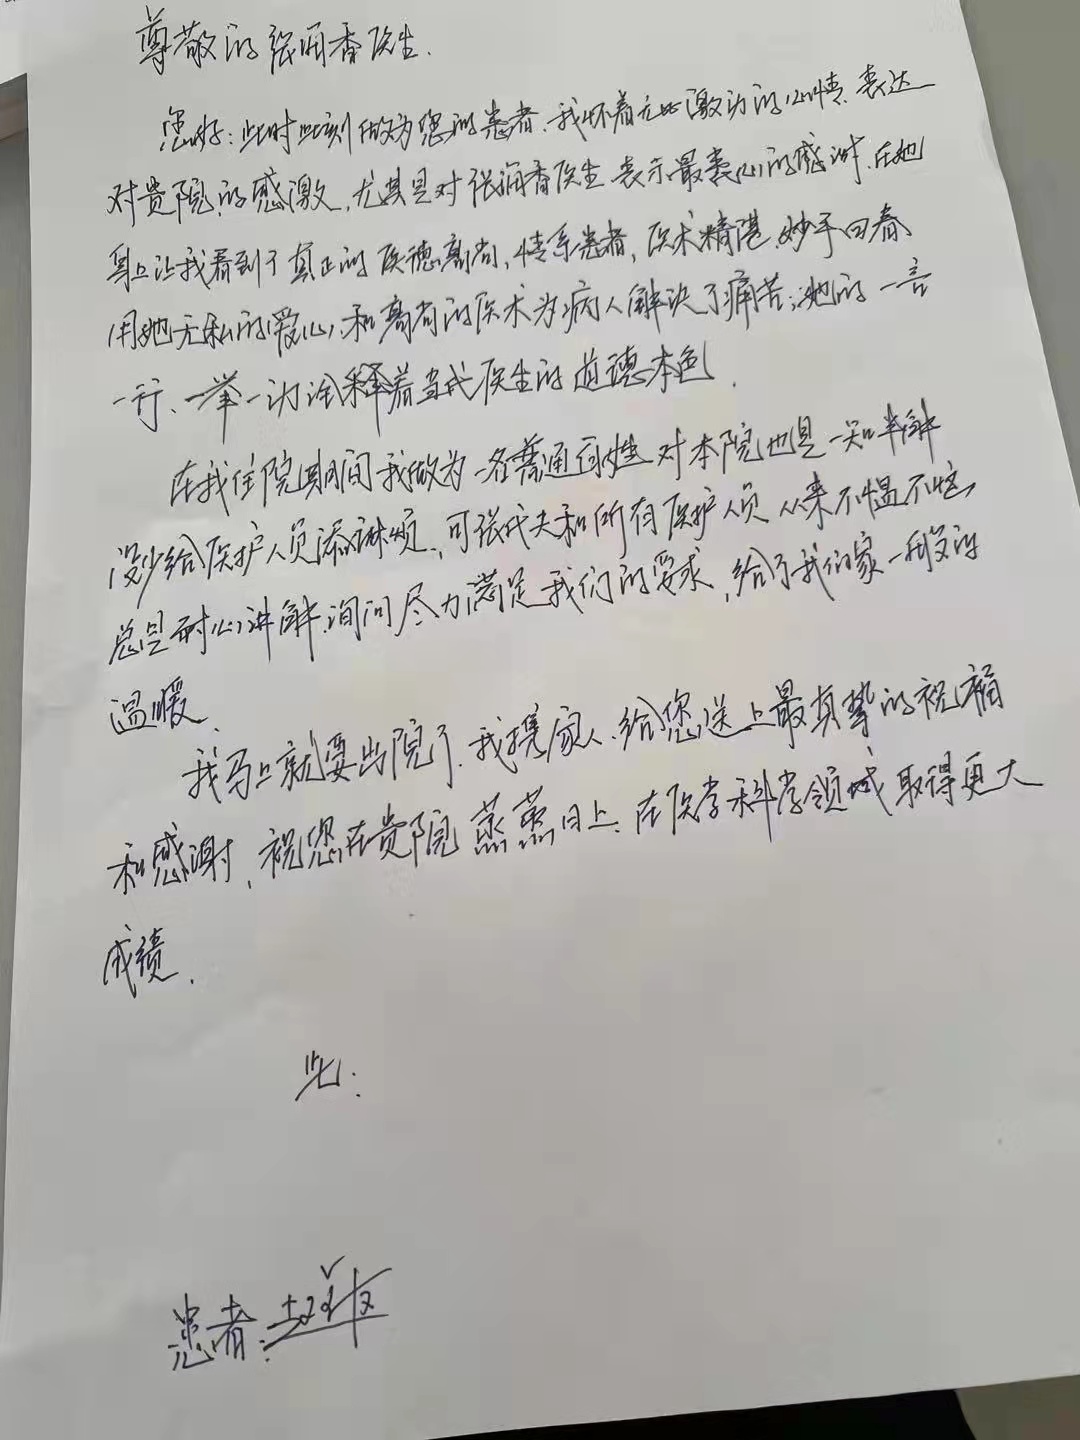 尊敬的张润香医生.
您好：此时此刻做为您的患者.我怀着无比激动的心情.表达
对贵院.的感激.尤其是对张润香医生表示最衷心的感谢.在她
身上让我看到了真正的医德高尚,情系患者,医术精湛.妙手回春
用她无私的爱心,和高尚的医术为病人解决了痛苦;她的一言
一行、一举一动诠释着当代医生的道德本色.
在我住院期间我做为一名普通百姓对本院也是一知半解
没少给医护人员添麻烦.可张代夫和所有医护人员从来不愠不恼
总是耐心讲解.询问尽力满足我们的要求,给了我们家一般的
温暖.
我马上就要出院了.我携家人.给您送上最真挚的祝福
和感谢,祝您在贵院蒸蒸日上.在医学科学领域取得更大
成绩.
此:
患者: